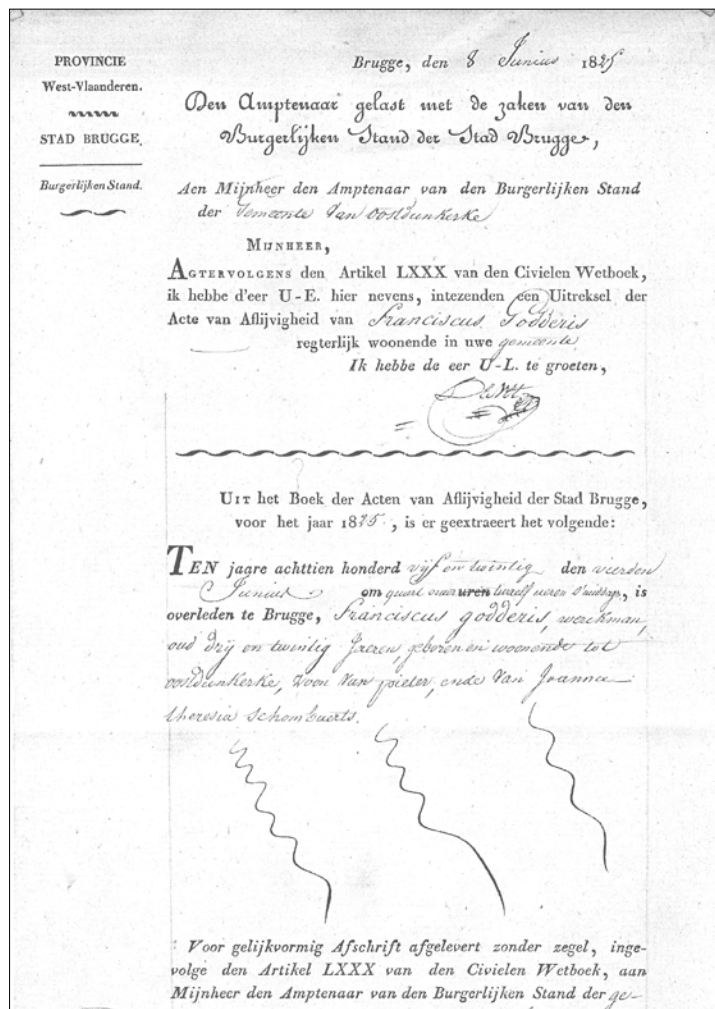 PROVINCIE
West-Vlaanderen.
STAD BRUGGE.
Burgerlijken Stand.
Brugge, den 8 Junius 1825
Den Amptenaar gelast met de zaken van den
Burgerlijken Stand der Stad Brugge,
Aen Mijnheer den Amptenaar van den Burgerlijken Stand
der Gemeente Van oostdunkerke
MIJNHEER,
AGTERVOLGENS den Artikel LXXX van den Civielen Wetboek,
ik hebbe d'eer U-E. hier nevens, intezenden een Uitreksel der
Acte van Aflijvigheid van Franciscus Godderis
regterlijk woonende in uwe gemeente
Ik hebbe de eer U-L. te groeten,
UIT het Boek der Acten van Aflijvigheid der Stad Brugge,
voor het jaar 1825, is er geextraeert het volgende:
TEN jaare achttien honderd vijf en twintig den vierden
Junius om quart over uren twaalf uren s'middags, is
overleden te Brugge, Franciscus godderis, werkman,
oud drij en twintig Jaeren, geboren en woonende tot
oostdunkerke, zoon Van pieter, ende Van Joanna
theresia
Voor gelijkvormig Afschrift afgelevert zonder zegel, inge-
volge den Artikel LXXX van den Civielen Wetboek, aan
Mijnheer den Amptenaar van den Burgerlijken Stand der ge-